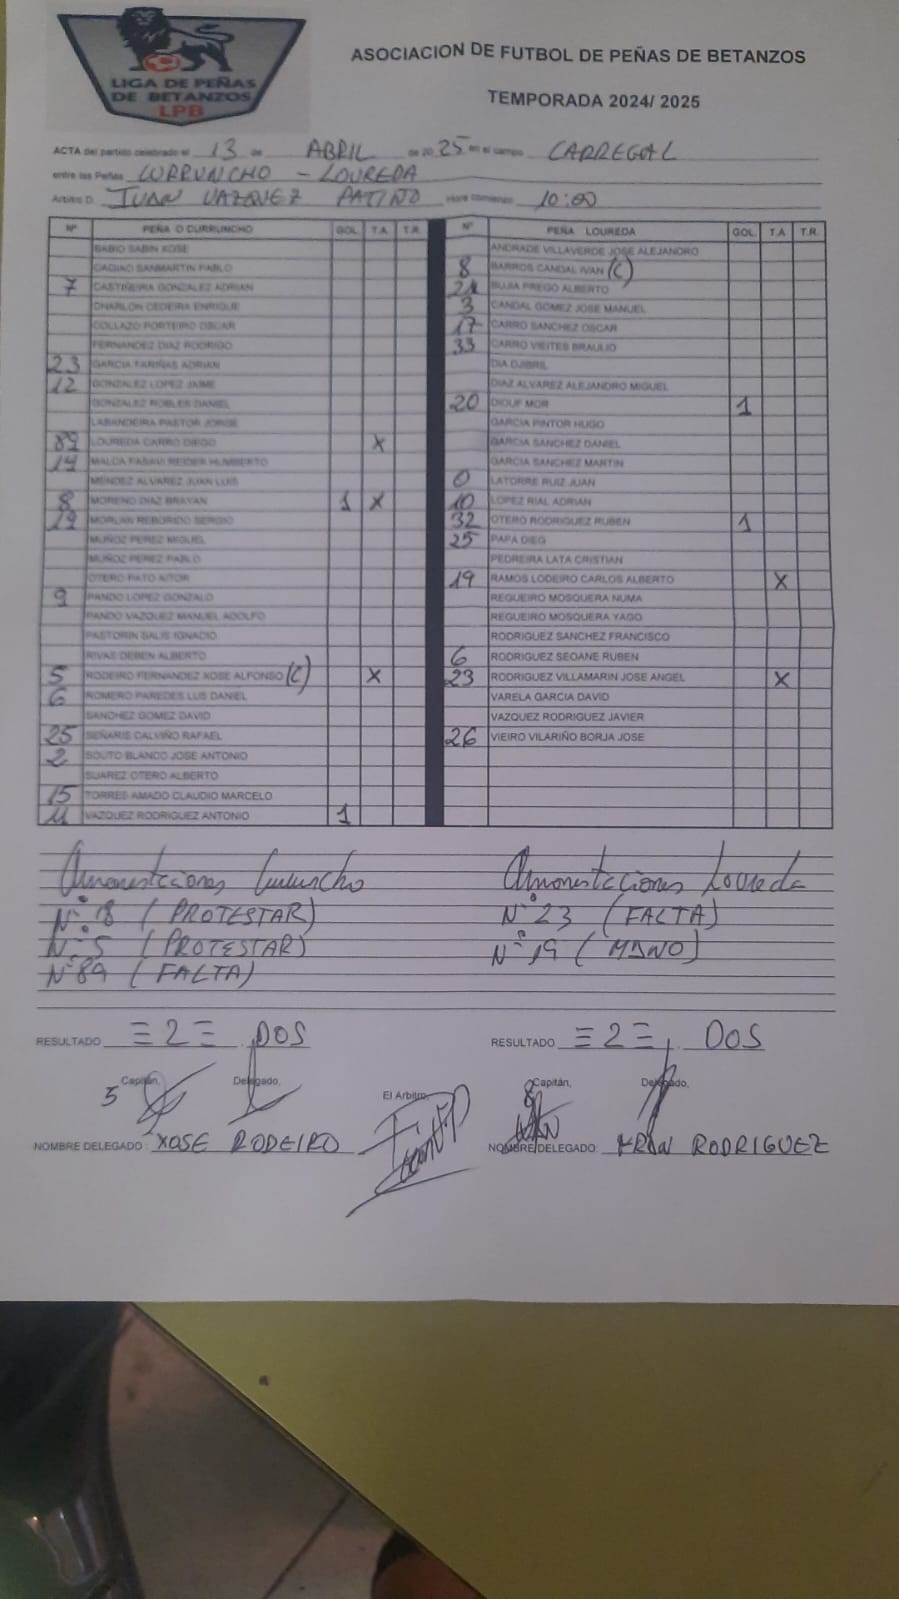 LIGA DE PEÑAS
DE BETANZOS
LPB
ASOCIACION DE FUTBOL DE PEÑAS DE BETANZOS
TEMPORADA 2024/ 2025
ACTA del partido celebrado el 13 de ABRIL de 20 25 en el campo CARREGAL
entre las Peñas CURRUNCHO - LOUREDA
Arbitro D. IVAN VAZQUEZ PATIÑO Hora comienzo 10:00
Nº PEÑA O CURRUNCHO GOL T.A. T.R.
BABIO SABIN XOSE
CACHAO SANMARTIN PABLO
7 CASTIÑEIRA GONZALEZ ADRIAN
CHARLON CEDEIRA ENRIQUE
COLLAZO PORTEIRO OSCAR
FERNANDEZ DIAZ RODRIGO
23 GARCIA FARIÑAS ADRIAN
12 GONZALEZ LOPEZ JAIME
GONZALEZ ROBLES DANIEL
LABANDEIRA PASTOR JORGE
89 LOUREDA CARRO DIEGO X
14 HUMBERTO
MENDEZ ALVAREZ JUAN LUIS
8 MORENO DIAZ BRAYAN 1 X
19 MORLAN REBORIDO SERGIO
MUÑOZ PEREZ MIGUEL
MUÑOZ PEREZ PABLO
OTERO PATO AITOR
9 PANDO LOPEZ GONZALO
PANDO VAZQUEZ MANUEL ADOLFO
PASTORIN SALIS IGNACIO
RIVAS DEBEN ALBERTO
5 RODEIRO FERNANDEZ XOSE ALFONSO (C) X
6 ROMERO PAREDES LUIS DANIEL
SANCHEZ GOMEZ DAVID
25 SEÑARIS CALVIÑO RAFAEL
2 SOUTO BLANCO JOSE ANTONIO
SUAREZ OTERO ALBERTO
15 TORRES AMADO CLAUDIO MARCELO
11 VAZQUEZ RODRIGUEZ ANTONIO 1
Nº PEÑA LOUREDA GOL T.A T.R.
ANDRADE VILLAVERDE JOSE ALEJANDRO
8 BARROS CANDAL IVAN (C)
21 BUJIA PREGO ALBERTO
3 CANDAL GOMEZ JOSE MANUEL
17 CARRO SANCHEZ OSCAR
33 CARRO VIEITES BRAULIO
DIA DJIBRIL
DIAZ ALVAREZ ALEJANDRO MIGUEL
20 DIOUF MOR 1
GARCIA PINTOR HUGO
GARCIA SANCHEZ DANIEL
GARCIA SANCHEZ MARTIN
0 LATORRE RUIZ JUAN
10 LOPEZ RIAL ADRIAN
32 OTERO RODRIGUEZ RUBEN 1
25 PAPA DIEG
PEDREIRA LATA CRISTIAN
19 RAMOS LODEIRO CARLOS ALBERTO X
REGUEIRO MOSQUERA NUMA
REGUEIRO MOSQUERA YAGO
RODRIGUEZ SANCHEZ FRANCISCO
6 RODRIGUEZ SEOANE RUBEN
23 RODRIGUEZ VILLAMARIN JOSE ANGEL X
VARELA GARCIA DAVID
VAZQUEZ RODRIGUEZ JAVIER
26 VIEIRO VILARIÑO BORJA JOSE
Amonestaciones Curuncho
Nº 8 (PROTESTAR)
Nº 5 (PROTESTAR)
Nº 89 (FALTA)
Amonestaciones Loureda
Nº 23 (FALTA)
Nº 19 (MANO)
RESULTADO =2= DOS
RESULTADO =2= DOS
Capitán, Delegado,
5
El Arbitro,
Capitán, Delegado,
8
NOMBRE DELEGADO: XOSE RODEIRO
NOMBRE DELEGADO: FRAN RODRIGUEZ